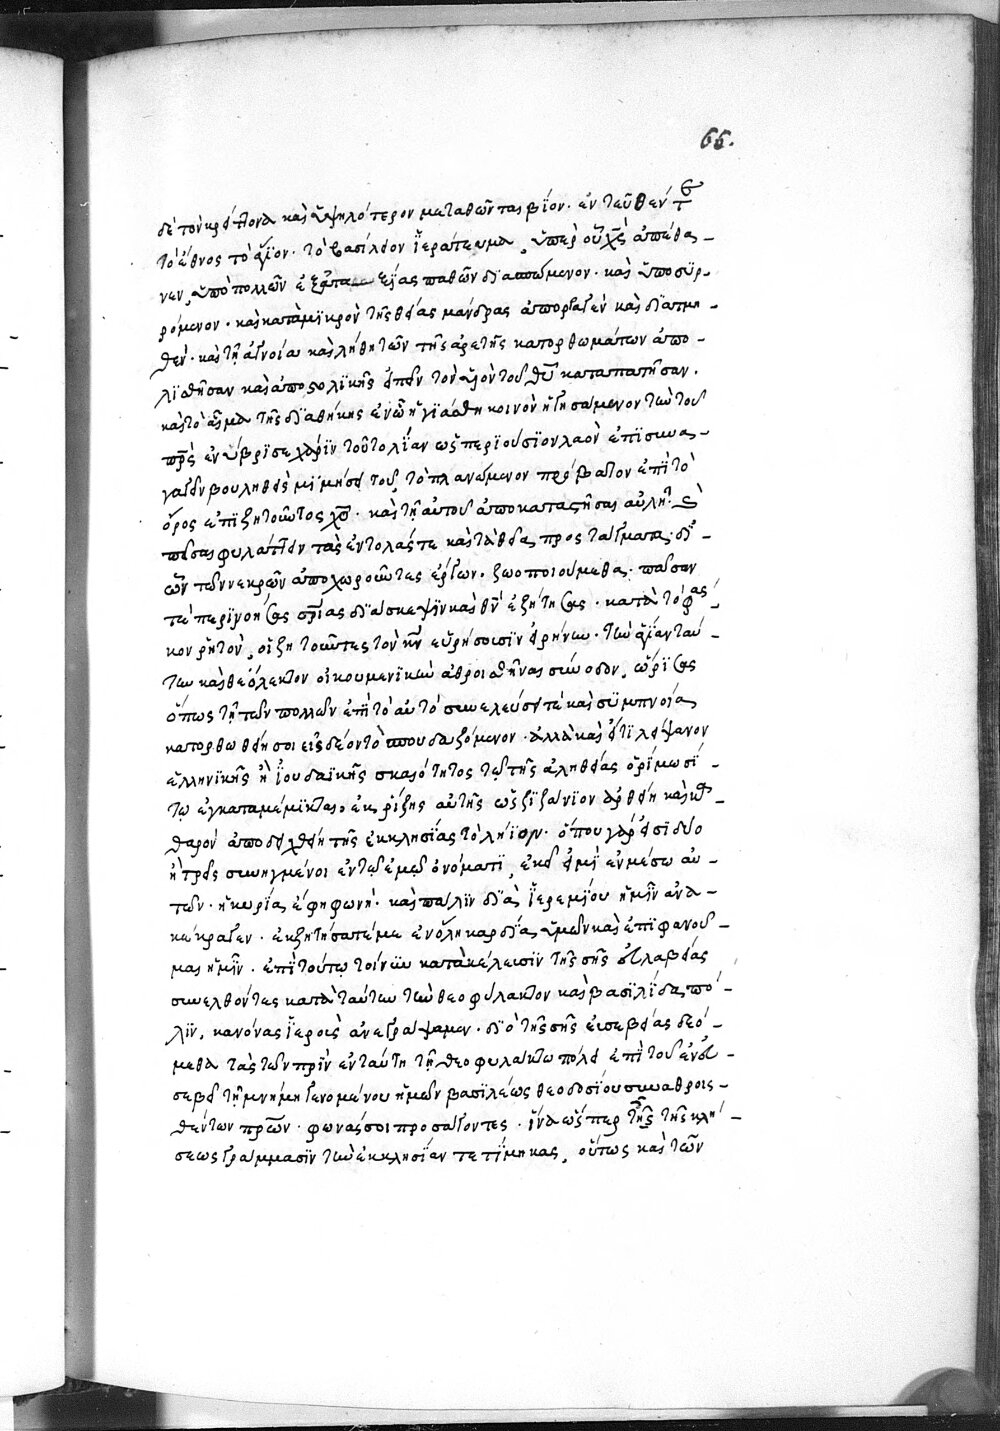 66.
δὲ τὸν κρείττονα καὶ ὑψηλότερον μεταθῶνται βίον. ἐντεῦθεν
τὸ ἔθνος τὸ ἅγϊον. τὸ βασίλειον ἱεράτευμα, ὑπὲρ οὗ χς ἀπέθα-
νεν, ὑπὸ πολλῶν παθῶν διασπώμενον. καὶ ὑποσϋρ-
ρόμενον. καὶ κατὰ μϊκρὸν τῆς θείας μάνδρας ἀπορραγὲν καὶ διατμη-
θέν. καὶ τῇ ἀγνοία καὶ λήθη τῶν τῆς ἀρετῆς κατορθωμάτων ἀπο-
λϊσθῆσαν καὶ ἀποστολϊκῆς εἰπεῖν τὸν υἱὸν τοῦ θῦ καταπατῆσαν.
καὶ τὸ αἷμα τῆς διαθήκης ἐν ᾧ ἡγϊάσθη κοινὸν ἡγησάμενον τὴν τοῦ
πνς ἐνύβρϊσε χάρϊν τοῦτο λίαν ὡς περϊούσϊον λαὸν ἐπϊσυνα-
γαγεῖν βουληθεὶς μϊμήσει τοῦ, τὸ πλανώμενον πρόβατον ἐπὶ τὸ
ὄρος ἐπϊζητοῦντος χῦ. καὶ τῇ αὐτοῦ ἀποκαταστῆσαι αὐλῇ.
πεῖσαι φυλάττειν τὰς ἐντολάς τε καὶ τὰ θεῖα προστάγματα. δι'
ὧν τῶν νεκρῶν ἀποχωροῦντες ἔργων. ζωοποιούμεθα. πᾶσαν
τε περϊνοήσας σρίας διάσκεψϊν καὶ θῦ ἐξήτησας. κατὰ τὸ φάς-
κον ρητὸν, οἱ ζητοῦντες τὸν κν εὑρήσουσϊν εἰρήνην. τὴν ἁγίαν ταύ-
την καὶ θεόλεκτον οἰκουμενϊκὴν ἀθροισθῆναι σύνοδον, ὥρϊσας
ὅπως τῇ τῶν πολλῶν ἐπὶ τὸ αὐτὸ συνελεύσει τὲ καὶ συμπνοίᾳ
κατορθωθείη σοι εἰς δέον τὸ σπουδαζόμενον. ἀλλὰ καὶ εἴ τϊ λείψανον
ἑλληνϊκῆς ἢ ἰουδαϊκῆς σκαιότητος τῷ τῆς ἀληθείας ὡρίμω σί-
τω ἐγκαταμέμϊκται, ἐκ ρίζης αὐτῆς ὡς ζϊζάνϊον ἀρθείη καὶ κα-
θαρὸν ἀποδειχθείη τῆς ἐκκλησίας τὸ λήϊον. ὅπου γάρ εἰσϊ δύο
ἢ τρεῖς συνηγμένοι ἐν τῷ ἐμῷ ὀνόματϊ, ἐκεῖ εἰμὶ ἐν μέσω αὐ-
τῶν. ἡ κυρία ἔφη φωνή. καὶ πάλϊν δϊὰ ἱερεμίου ἡμῖν ἀνα-
κέκραγεν. ἐκζητήσατέ με ἐν ὅλη καρδία ὑμῶν καὶ ἐπϊφανοῦ-
μαι ἡμῖν. ἐπὶ τούτω τοίνυν κατὰ κέλευσϊν τῆς σῆς εὐλαβείας
συνελθόντες κατὰ ταύτην τὴν θεοφύλακτον καὶ βασϊλίδα πό-
λϊν, κανόνας ἱεροὺς ἀνεγράψαμεν. δϊὸ τῆς σῆς εὐσεβείας δεό-
μεθα τὰς τῶν πρὶν ἐν ταύτη τῇ θεοφυλάκτω πόλει ἐπὶ τοῦ ἐν εὐ-
σεβεῖ τῇ μνήμη γενομένου ἡμῶν βασϊλέως θεοδοσίου συναθροισ-
θέντων πρῶν. φωνάς σοι προσάγοντες. ἵνα ὥσπερ τῆς κλή-
σεως γράμμασϊν τὴν ἐκκλησίαν τετίμηκας, οὕτως καὶ τῶν